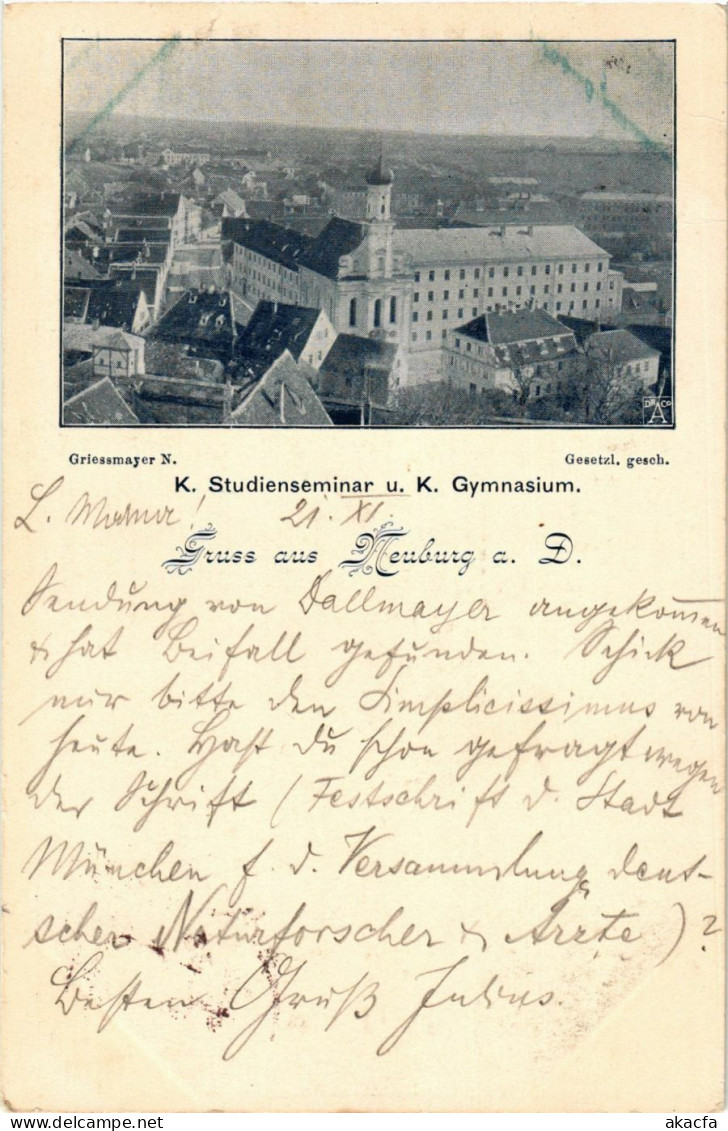 DR & Co
A
Griessmayer N. Gesetzl. gesch.
K. Studienseminar u. K. Gymnasium.
L. Mama! 21. XI.
Gruss aus Neuburg a. D.
Sendung von Dallmayer angekommen
& hat Beifall gefunden. Schick
mir bitte den Simplicissimus von
heute. Hast du schon gefragt wegen
der Schrift (Festschrift d. Stadt
München f. d. Versammlung deut-
scher Naturforscher & Ärzte)?
Besten Gruß Julius.
akacfa